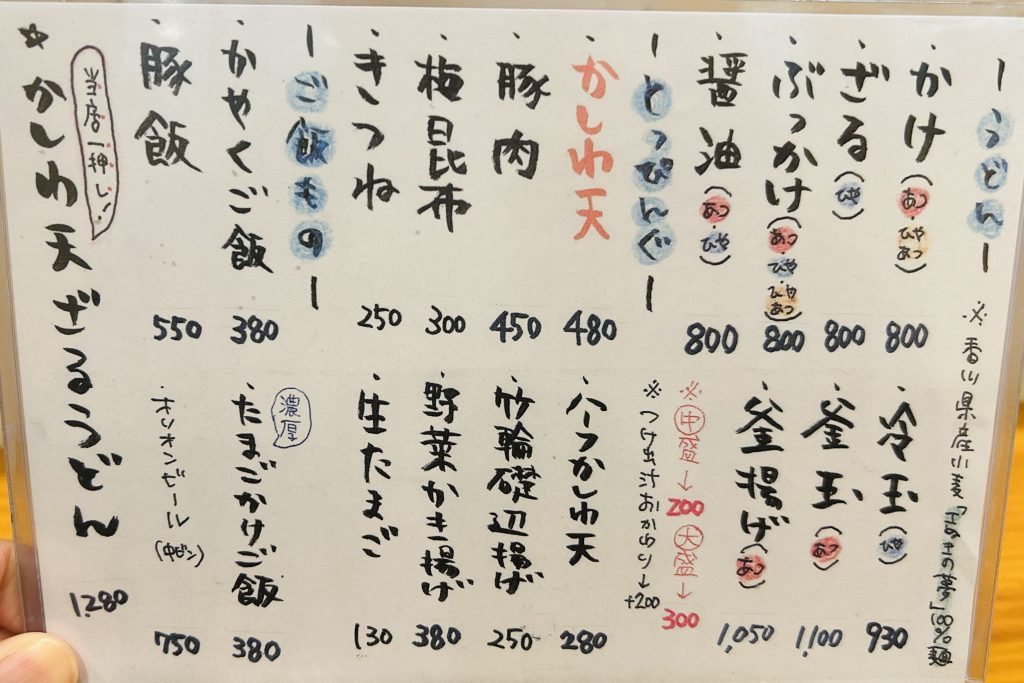 ーうどんー
※香川県産小麦「さぬきの夢」100%麺
・かけ(あつ ひやあつ) 800
・ざる(ひや) 800
・ぶっかけ(あつ ひや ひやあつ) 800
・醤油(あつ ひや) 800
・冷玉(ひや) 930
・釜玉(あつ) 1,100
・釜揚げ(あつ) 1,050
※中盛→200 大盛→300
※つけ出汁おかわり→+200
ーとっぴんぐー
・かしわ天 480
・豚肉 450
・梅昆布 300
・きつね 250
・ハーフかしわ天 280
・竹輪磯辺揚げ 250
・野菜かき揚げ 380
・生たまご 130
ーご飯ものー
・かやくご飯 380
・豚飯 550
濃厚
・たまごかけご飯 380
・オリオンビール(中ビン) 750
当店一押し!
☆かしわ天ざるうどん 1,280